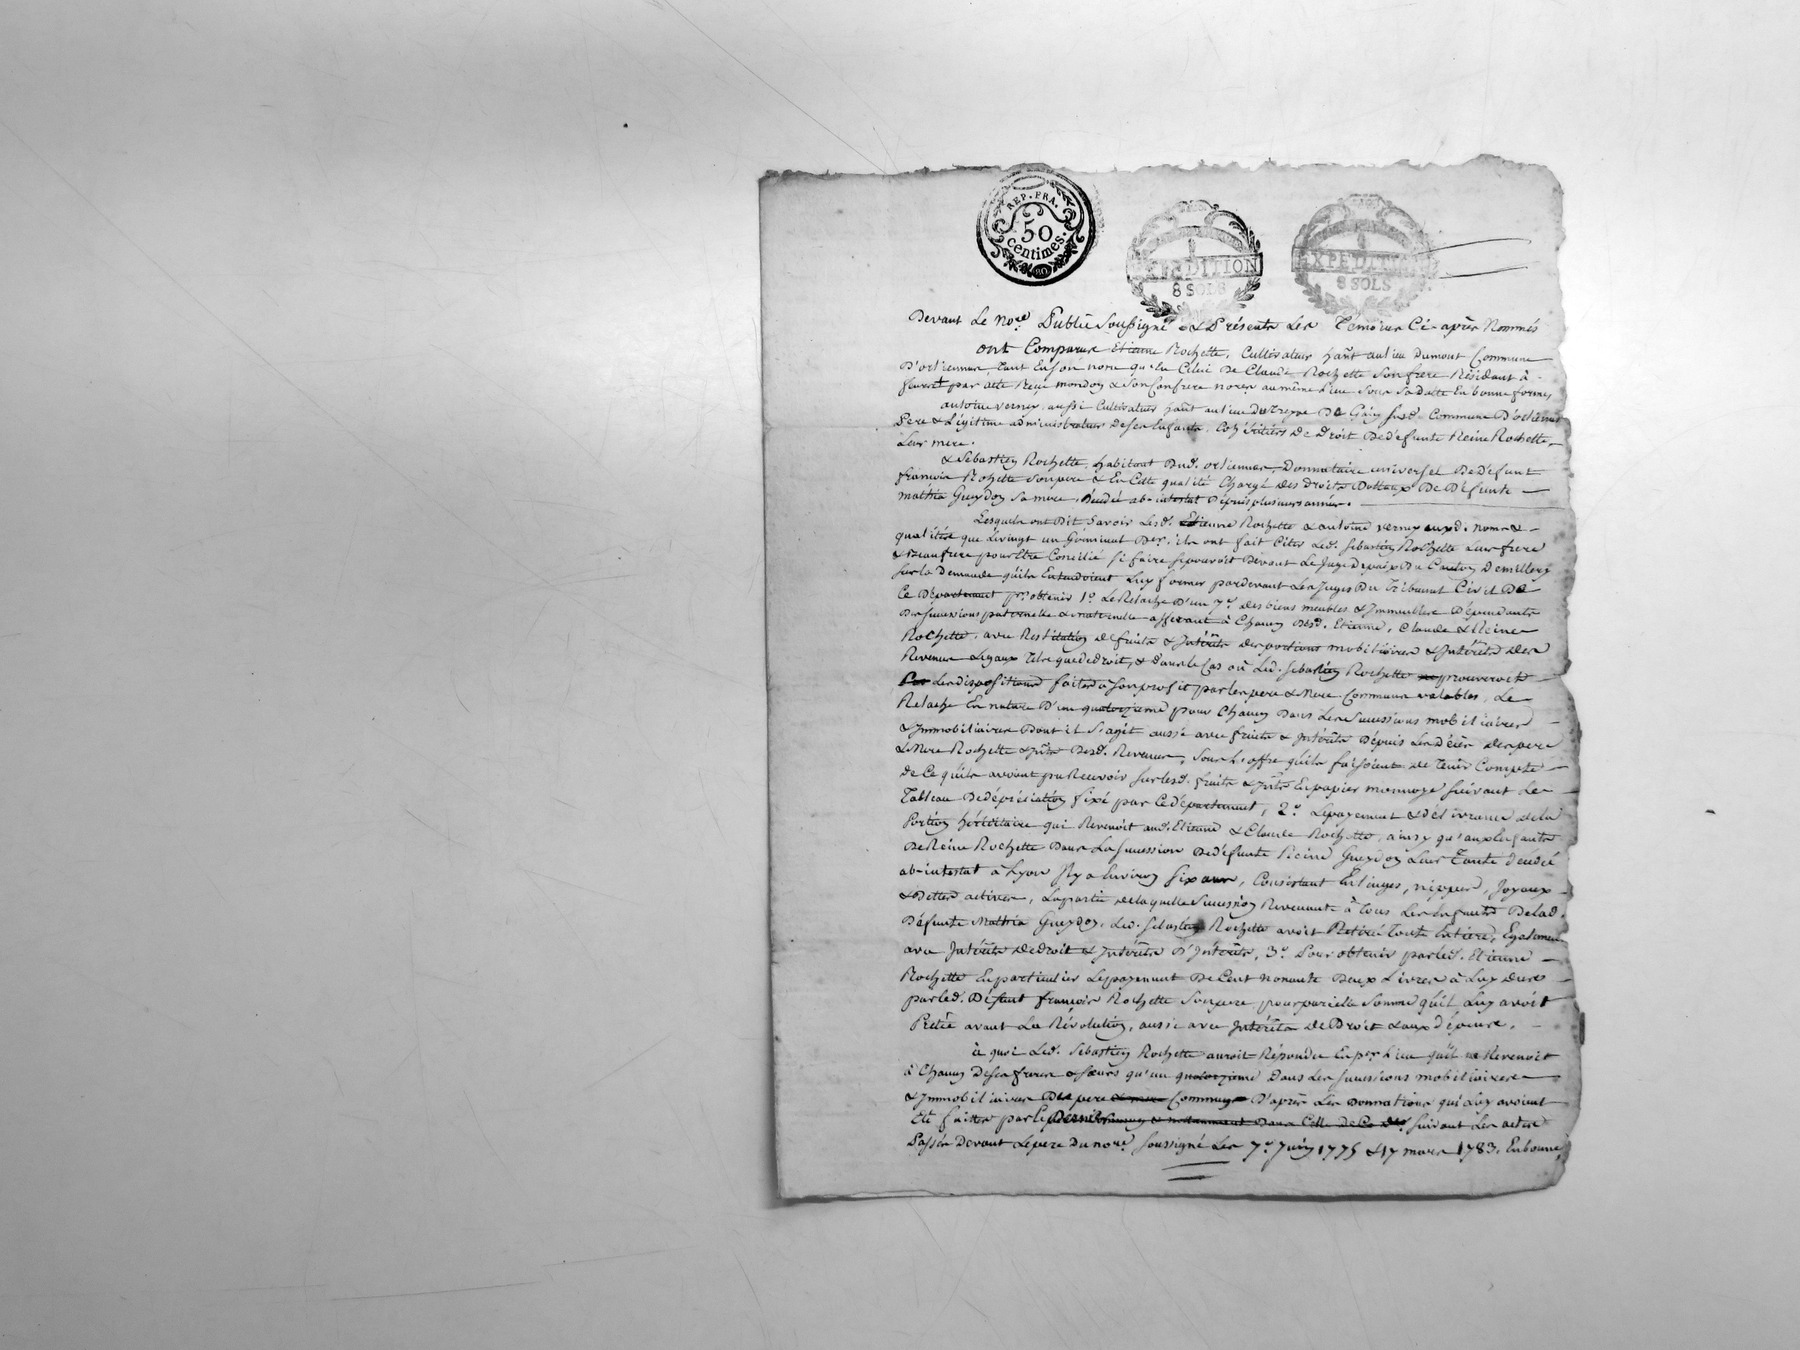 REP. FRA.
50
centimes.
EXPEDITION
8 SOLS
EXPEDITION
8 SOLS
Devant Le No.re Public Soussigné & Présents Les Temoins Ci-après Nommés
ont Comparus Etienne Rochette, Cultivateur hañt au lieu Dumont Commune
D'orliennas tant En son nom qu'en Celui De Claude Rochette son frere Résidant à
par acte Reçu mondon & son Confrere no.res au même Lieu sous sa datte En bonne forme,
antoine verney aussi Cultivateur hañt au lieu De Commune D'orliennas
Pere & Légitime administrateur de ses Enfants, Cohéritiers De Droit De défunte Reine Rochette
Leur mere.
& Sebastien Rochette, habitant Dud. orliennas, Donnataire universel De défunt
françois Rochette son pere & En Cette qualité Chargé des Droits Dottaux De Défunte
mathia Gueydon sa mere, Décédée ab-intestat Depuis plusieurs années.
Lesquels ont Dit Savoir Lesd. Etienne Rochette & antoine verney auxd. noms &
qualités que Le vingt un Germinal Der. ils ont fait Citer Led. Sebastien Rochette Leur frere
& Beaufrere pour Etre Concilié si faire se pouvoit Devant Le Juge De paix Du Canton De millery
sur la Demande qu'ils Entendoient Luy former pardevant Les Juges Du Tribunal Civil De
Ce Département pr. obtenir 1.° Le Relache D'un 7.e des biens meubles & Immeubles Dépendants
Des successions paternelle & maternelle afferant à Chacun Desd. Etienne, Claude & Reine
Rochette, avec Restitution de fruits & Intérêts des portions mobiliaires & Intérêts des
Revenus Legaux Tels que de droit, & dans le Cas où Led. Sebastien Rochette prouveroit
Les dispositions faites à son profit par Les pere & Mere Communs valables, Le
Relache En nature D'un quatorzieme pour Chacun Dans Les Successions mobiliaires
& Immobiliaires Dont il s'agit aussi avec fruits & Intérêts Depuis Les Décès des pere
& Mere Rochette & Ints Desd. Revenus, sous L'offre qu'ils faisoient de Tenir Compte
de Ce qu'ils avoient pu Recevoir sur lesd. fruits & Ints En papier monnoye suivant Le
Tableau De dépréciation fixé par Ce département, 2.° Le payement & délivrance de la
Portion héréditaire qui Revenoit aud. Etienne & Claude Rochette, ainsy qu'aux Enfants
De Reine Rochette Dans La Succession De défunte Reine Gueydon Leur Tante décédée
ab-intestat à Lyon Il y a Environ six ans, Consistant En Linges, nippes, Joyaux
& Dettes actives, La partie de laquelle Succession Revenante à Tous Les Enfants De lad.
Défunte Mathia Gueydon, Led. Sebastien Rochette avoit Retiré Toute Entiere, Egalement
avec Intérêts de droit & Intérêts D'Intérêts, 3.° Pour obtenir par led. Etienne
Rochette En particulier Le payement De Cent nonante Deux Livres à Luy dues
par led. Défunt françois Rochette son pere pour pareille Somme qu'il Luy avoit
Pretée avant La Révolution, aussi avec Intérêts de Droit & aux dépens.
à quoi Led. Sebastien Rochette auroit Répondu En pr. Lieu qu'il ne Revenoit
à Chacun de ses freres & sœurs qu'un quatorzieme dans Les Successions mobiliaires
& Immobiliaires Des pere & mere Communs D'après Les Donnations qui Luy avoient
Eté faittes par Le suivant Les actes
Passés Devant Le pere Du no.re soussigné Les 7.e Juin 1775 & 17 mars 1783. En bonne